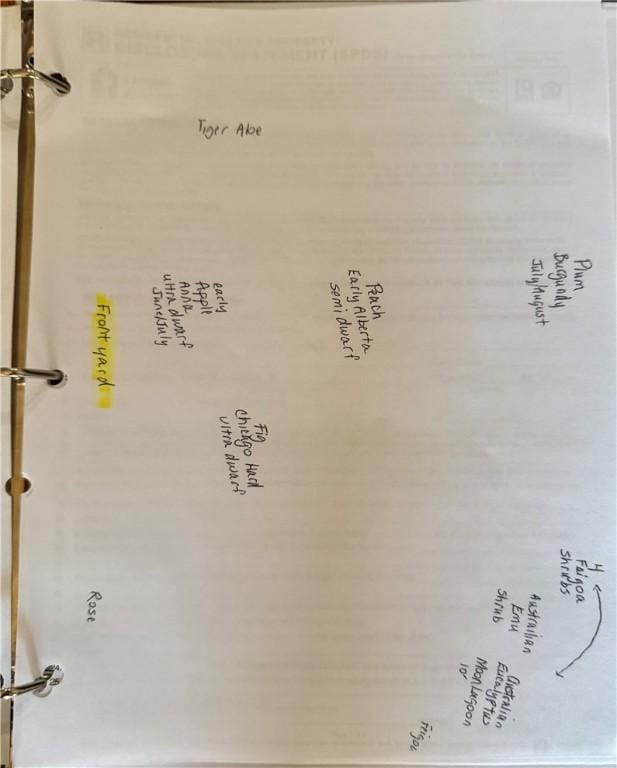 Tiger Aloe
Plum
Burgundy
July/August
Peach
Early Alberta
semi dwarf
early
Apple
Anna
ultra dwarf
June/July
Front yard
Fig
Chicago Hard
ultra dwarf
4
Feigoa
shrubs
Australian
Emu
Shrub
Australian
Eucalyptus
Moon Lagoon
Rose